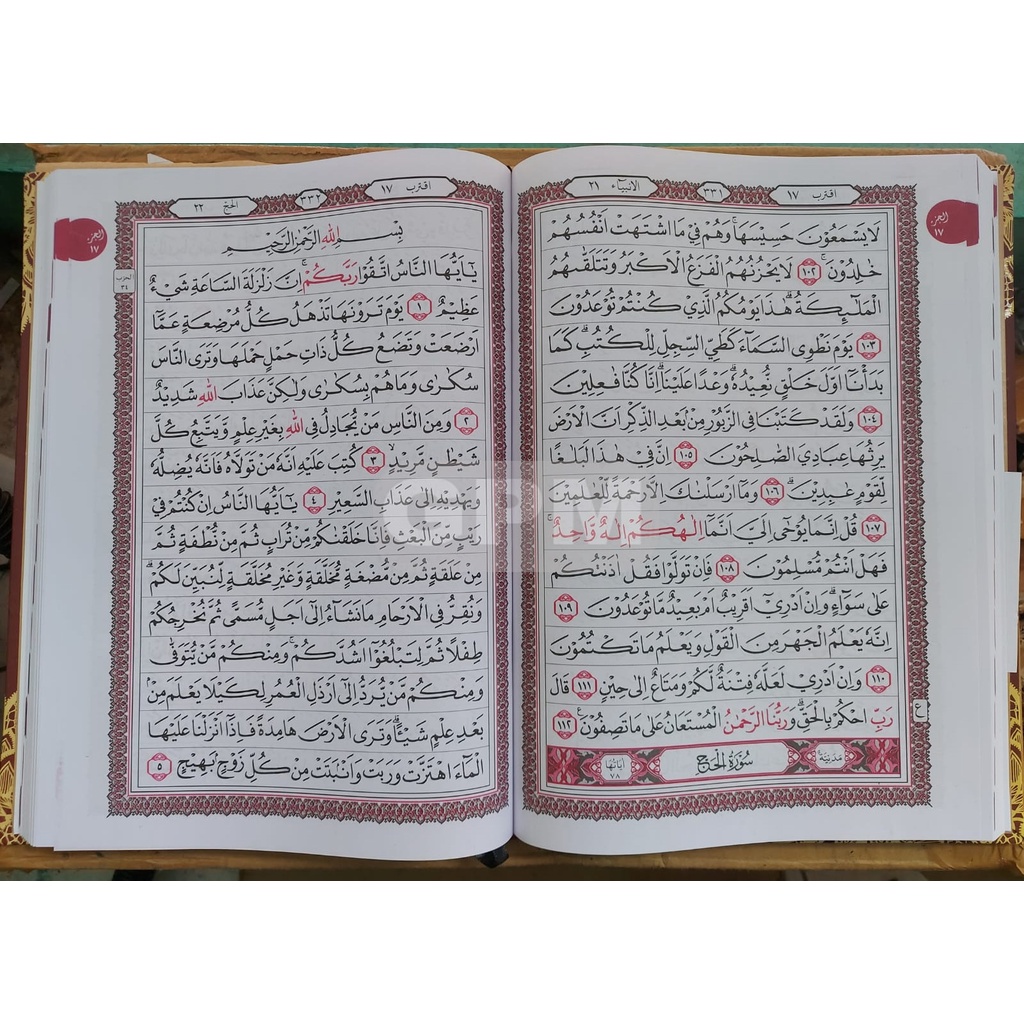 اقترب ١٧
٣٣١
الانبيآء ٢١
الجزء
١٧
لَا يَسْمَعُوْنَ حَسِيْسَهَاۚ وَهُمْ فِيْ مَا اشْتَهَتْ اَنْفُسُهُمْ
خٰلِدُوْنَۚ ١٠٢ لَا يَحْزُنُهُمُ الْفَزَعُ الْاَكْبَرُ وَتَتَلَقّٰىهُمُ
الْمَلٰۤىِٕكَةُۗ هٰذَا يَوْمُكُمُ الَّذِيْ كُنْتُمْ تُوْعَدُوْنَ
١٠٣ يَوْمَ نَطْوِى السَّمَاۤءَ كَطَيِّ السِّجِلِّ لِلْكُتُبِۗ كَمَا
بَدَأْنَآ اَوَّلَ خَلْقٍ نُّعِيْدُهٗۗ وَعْدًا عَلَيْنَاۗ اِنَّا كُنَّا فٰعِلِيْنَ
١٠٤ وَلَقَدْ كَتَبْنَا فِى الزَّبُوْرِ مِنْۢ بَعْدِ الذِّكْرِ اَنَّ الْاَرْضَ
يَرِثُهَا عِبَادِيَ الصّٰلِحُوْنَ ١٠٥ اِنَّ فِيْ هٰذَا لَبَلٰغًا
لِّقَوْمٍ عٰبِدِيْنَۗ ١٠٦ وَمَآ اَرْسَلْنٰكَ اِلَّا رَحْمَةً لِّلْعٰلَمِيْنَ
١٠٧ قُلْ اِنَّمَا يُوْحٰٓى اِلَيَّ اَنَّمَآ اِلٰهُكُمْ اِلٰهٌ وَّاحِدٌۚ
فَهَلْ اَنْتُمْ مُّسْلِمُوْنَ ١٠٨ فَاِنْ تَوَلَّوْا فَقُلْ اٰذَنْتُكُمْ
عَلٰى سَوَاۤءٍۗ وَاِنْ اَدْرِيْٓ اَقَرِيْبٌ اَمْ بَعِيْدٌ مَّا تُوْعَدُوْنَ ١٠٩
اِنَّهٗ يَعْلَمُ الْجَهْرَ مِنَ الْقَوْلِ وَيَعْلَمُ مَا تَكْتُمُوْنَ
١١٠ وَاِنْ اَدْرِيْ لَعَلَّهٗ فِتْنَةٌ لَّكُمْ وَمَتَاعٌ اِلٰى حِيْنٍ ١١١ قَالَ
رَبِّ احْكُمْ بِالْحَقِّۗ وَرَبُّنَا الرَّحْمٰنُ الْمُسْتَعَانُ عَلٰى مَا تَصِفُوْنَ ١١٢
ع
مَدَنِيَّة
سُوْرَةُ الْحَجِّ
اٰيَاتُهَا
٧٨
اقترب ١٧
٣٣٢
الحجّ ٢٢
الجزء
١٧
الحزب
٣٤
بِسْمِ اللّٰهِ الرَّحْمٰنِ الرَّحِيْمِ
يٰٓاَيُّهَا النَّاسُ اتَّقُوْا رَبَّكُمْۚ اِنَّ زَلْزَلَةَ السَّاعَةِ شَيْءٌ
عَظِيْمٌ ١ يَوْمَ تَرَوْنَهَا تَذْهَلُ كُلُّ مُرْضِعَةٍ عَمَّآ
اَرْضَعَتْ وَتَضَعُ كُلُّ ذَاتِ حَمْلٍ حَمْلَهَا وَتَرَى النَّاسَ
سُكٰرٰى وَمَا هُمْ بِسُكٰرٰى وَلٰكِنَّ عَذَابَ اللّٰهِ شَدِيْدٌ
٢ وَمِنَ النَّاسِ مَنْ يُّجَادِلُ فِى اللّٰهِ بِغَيْرِ عِلْمٍ وَّيَتَّبِعُ كُلَّ
شَيْطٰنٍ مَّرِيْدٍۙ ٣ كُتِبَ عَلَيْهِ اَنَّهٗ مَنْ تَوَلَّاهُ فَاَنَّهٗ يُضِلُّهٗ
وَيَهْدِيْهِ اِلٰى عَذَابِ السَّعِيْرِ ٤ يٰٓاَيُّهَا النَّاسُ اِنْ كُنْتُمْ فِيْ
رَيْبٍ مِّنَ الْبَعْثِ فَاِنَّا خَلَقْنٰكُمْ مِّنْ تُرَابٍ ثُمَّ مِنْ نُّطْفَةٍ ثُمَّ
مِنْ عَلَقَةٍ ثُمَّ مِنْ مُّضْغَةٍ مُّخَلَّقَةٍ وَّغَيْرِ مُخَلَّقَةٍ لِّنُبَيِّنَ لَكُمْۗ
وَنُقِرُّ فِى الْاَرْحَامِ مَا نَشَاۤءُ اِلٰٓى اَجَلٍ مُّسَمًّى ثُمَّ نُخْرِجُكُمْ
طِفْلًا ثُمَّ لِتَبْلُغُوْٓا اَشُدَّكُمْۚ وَمِنْكُمْ مَّنْ يُّتَوَفّٰى
وَمِنْكُمْ مَّنْ يُّرَدُّ اِلٰٓى اَرْذَلِ الْعُمُرِ لِكَيْلَا يَعْلَمَ مِنْۢ
بَعْدِ عِلْمٍ شَيْـًٔاۗ وَتَرَى الْاَرْضَ هَامِدَةً فَاِذَآ اَنْزَلْنَا عَلَيْهَا
الْمَاۤءَ اهْتَزَّتْ وَرَبَتْ وَاَنْۢبَتَتْ مِنْ كُلِّ زَوْجٍۢ بَهِيْجٍ ٥
GPM